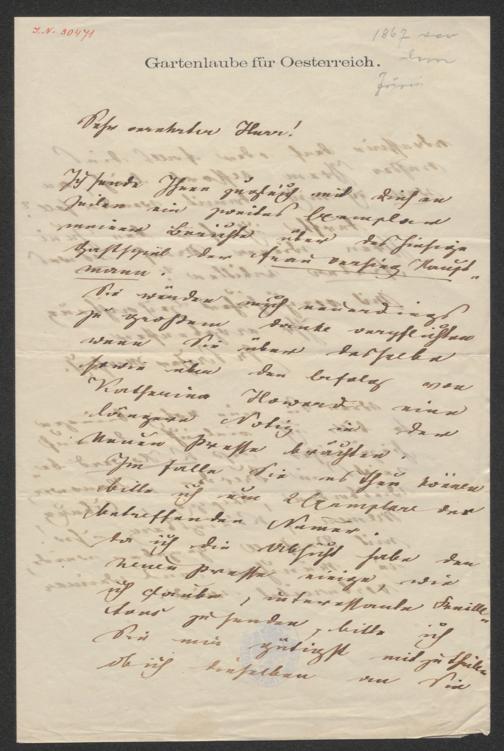 I.N. 30471
1867 vor
dem
Juni
Gartenlaube für Oesterreich.
Sehr verehrter Herr!
Ich sende Ihnen zugleich mit diesen
Zeilen ein zweites Exemplar
meiner Berichte über das hiesige
Gastspiel der Frau Versing Haupt-
mann.
Sie würden mich neuerdings
zu großem Danke verpflichten
wenn Sie über dasselbe
sowie über den Erfolg von
Katharina Howard eine
längere Notiz in der
Neuen Presse brächten.
Im Falle Sie es thun können
bitte ich um 2 Exemplare der
betreffenden Numer.
Da ich die Absicht habe der
neuen Presse einige, wie
ich glaube, interessante Feuille-
tons zu senden, bitte ich
Sie mir gütigst mitzutheilen
ob ich dieselben an Sie